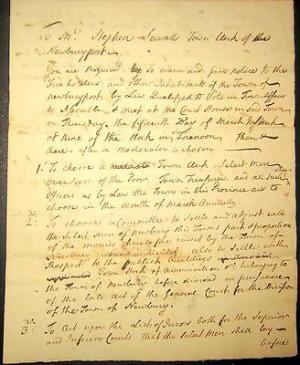 To Mr. Stephen Sewall Town Clerk of the
Newburyport
You are required to warn and give notice to the
Freeholders and other Inhabitants of the Town of
newburyport by Law Qualified to Vote in Town affairs
to meet at the Court House in said Town
on Thursday, the fifteenth Day of March
at Nine of the Clock in Forenoon, then &
there, after a moderator chosen
1. To choose a Town Clerk, Select men
overseers of the Poor Town Treasurer and all such
officers as by Law the Towns in this Province are to
choose in the Month of March Annually
2. To choose a Committee to Settle and adjust with
the Select men of Newbury this Towns part & proportion
of the monies heretofore raised by the Town of
Newbury also to Settle with
Respect to the publick Buildings
Town Stock of ammunition &c belonging to
the Town of Newbury before divided in pursuance
of the late act of the General Court for the Division
of the Town of Newbury.
3. To Act upon the List of Jurors both for the Superior
and Inferiour Courts that the Select men shall lay
before